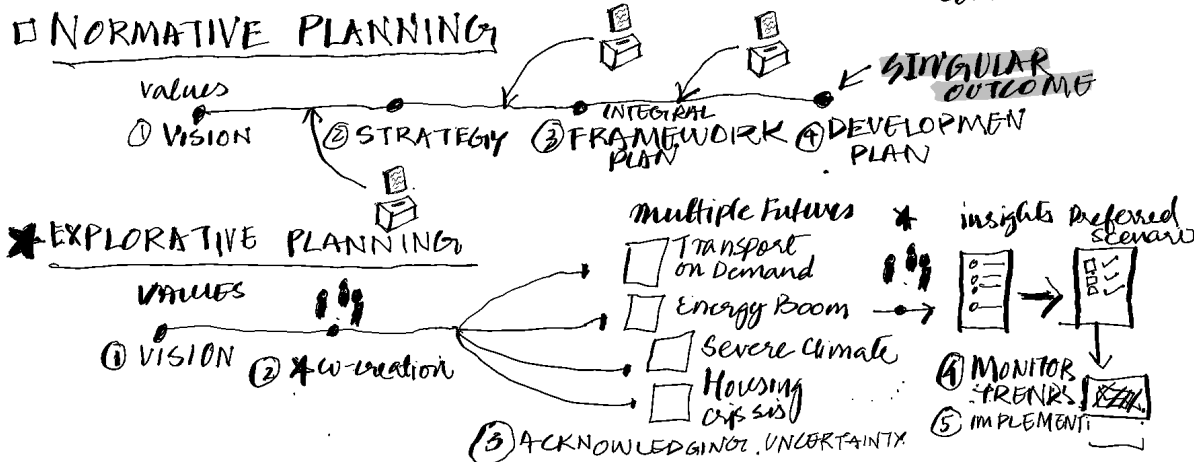 NORMATIVE PLANNING
values
① VISION
② STRATEGIY
③ INTEGRAL
FRAMEWORK
PLAN
④ DEVELOPMEN
PLAN
SINGULAR
OUTCOME
EXPLORATIVE PLANNING
VALUES
① VISION
② co-creation
multiple Futures
Transport
on Demand
Energy Boom
Severe Climate
Housing
crisis
③ ACKNOWLEDGING. UNCERTAINTY
insights
Preferred
scenario
④ MONITOR
TRENDS
⑤ IMPLEMENT